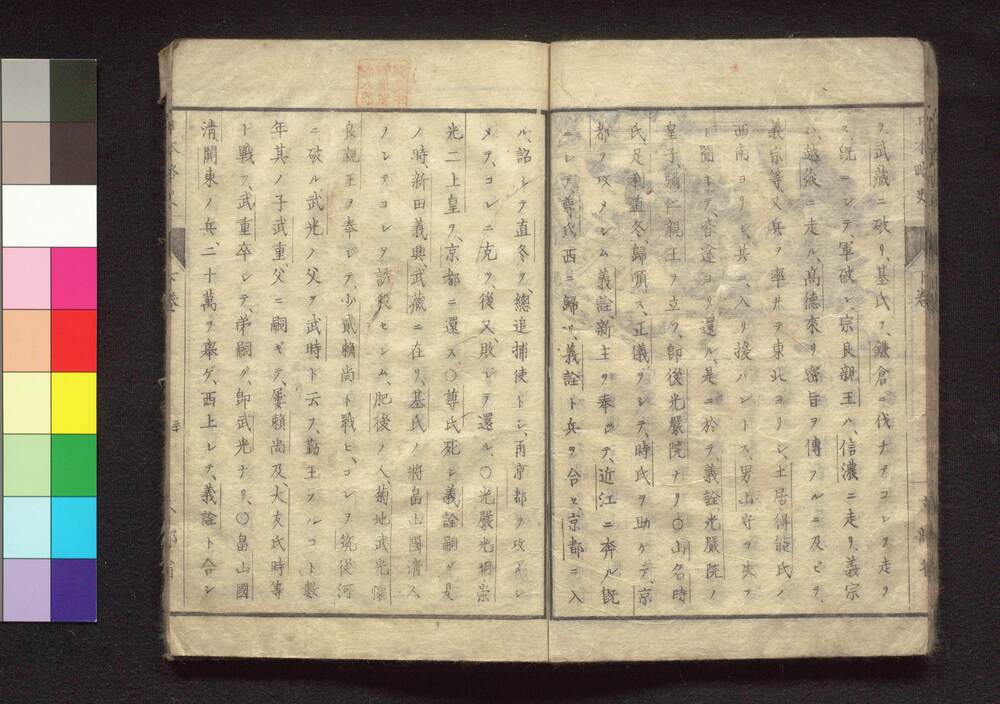 ヲ武藏ニ破リ、基氏ヲ、鎌倉ニ伐チテコレヲ走ラ
ス、既ニシテ軍破レ宗良親王ハ、信濃ニ走リ、義宗
ハ、越後ニ走ル、高德來リ密旨ヲ傳フルニ及ビテ、
義宗等又兵ヲ率ヰテ東北ヨリシ、土居得能氏ノ
西南ヨリシ、共ニ入リ援ハントス、男山守ヲ失フ
ト聞キテ、皆途ヨリ還ル、是ニ於テ、義詮、光嚴院ノ
皇子、彌仁親王ヲ立ツ、卽後光嚴院ナリ〇山名時
氏、足利直冬、歸順ス、正儀ヲシテ、時氏ヲ助ケテ、京
都ヲ攻メシム義詮新主ヲ奉ジテ、近江ニ奔ル既
ニシテ、尊氏西ニ歸リ、義詮ト兵ヲ合セ、京都ニ入
ル、詔シテ直冬ヲ、總追捕使トシ、再京都ヲ攻メシ
メテ、コレニ克ツ、後又、敗レテ還ル、〇光嚴光明崇
光二上皇ヲ、京都ニ還ス〇尊氏死シ義詮嗣グ是
ノ時新田義興武藏ニ在リ、基氏ノ將畠山國淸人
ヲシテコレヲ誘殺セシム、肥後ノ人、菊地武光懷
良親王ヲ奉ジテ、少貳賴尚ト戰ヒ、コレヲ筑後河
ニ破ル武光ノ父ヲ武時ト云フ、勤王スルコト數
年其ノ子武重父ニ嗣ギテ、屢賴尚及大友氏時等
ト戰フ、武重卒シテ、弟嗣グ、卽武光ナリ、〇畠山國
淸、關東ノ兵、二十萬ヲ擧ゲ、西上シテ、義詮ト合シ